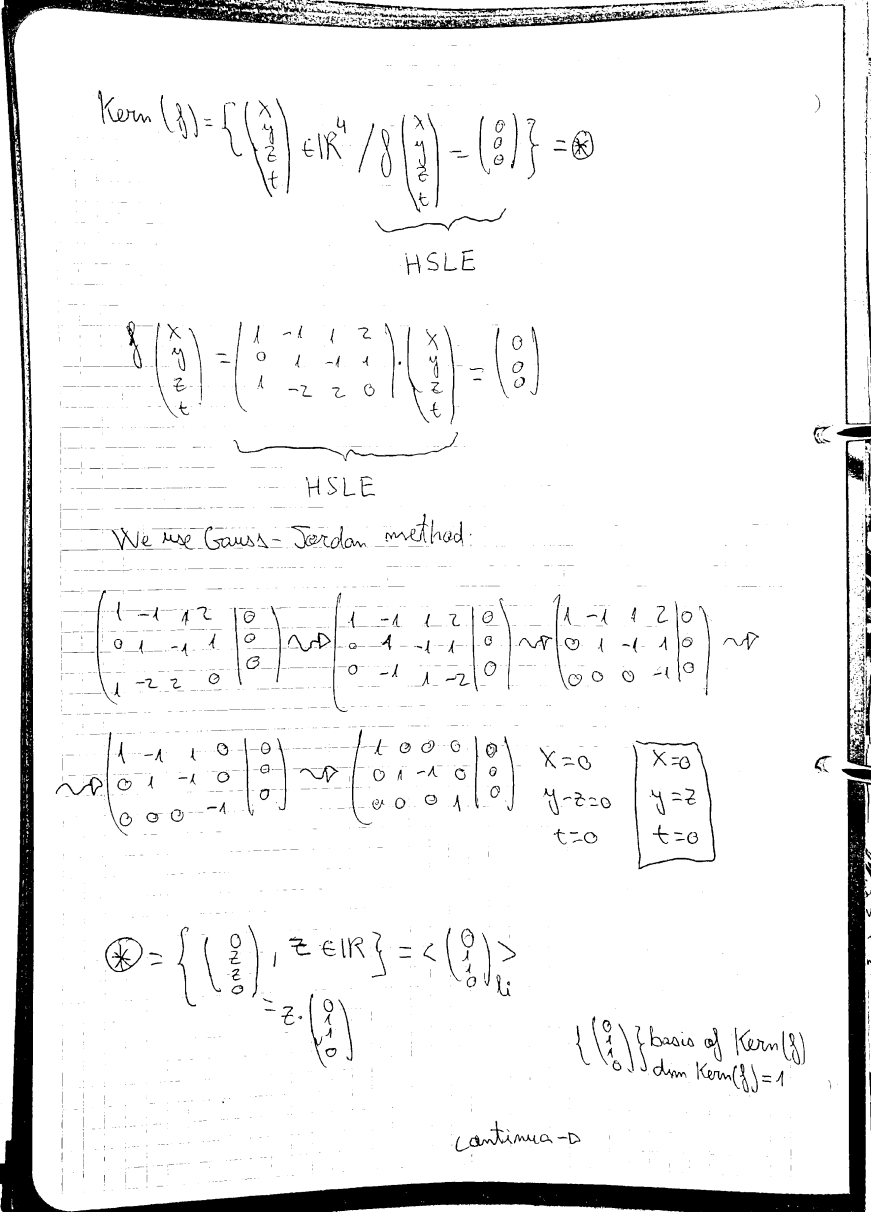 Kern (f) = { (x y z t) ∈ IR⁴ / f (x y z t) = (0 0 0) } = ⊛
HSLE
f (x y z t) = (1 -1 1 2 0 1 -1 1 1 -2 2 0) · (x y z t) = (0 0 0)
HSLE
We use Gauss-Jordan method:
(1 -1 1 2 | 0 0 1 -1 1 | 0 1 -2 2 0 | 0) ⇝ (1 -1 1 2 | 0 0 1 -1 1 | 0 0 -1 1 -2 | 0) ⇝ (1 -1 1 2 | 0 0 1 -1 1 | 0 0 0 0 -1 | 0) ⇝
⇝ (1 -1 1 0 | 0 0 1 -1 0 | 0 0 0 0 -1 | 0) ⇝ (1 0 0 0 | 0 0 1 -1 0 | 0 0 0 0 1 | 0)
x=0
y-z=0
t=0
x=0
y=z
t=0
⊛ = { (0 z z 0), z ∈ IR } = < (0 1 1 0) > li
= z · (0 1 1 0)
{ (0 1 1 0) } basis of Kern(f)
dim Kern(f) = 1
continua →